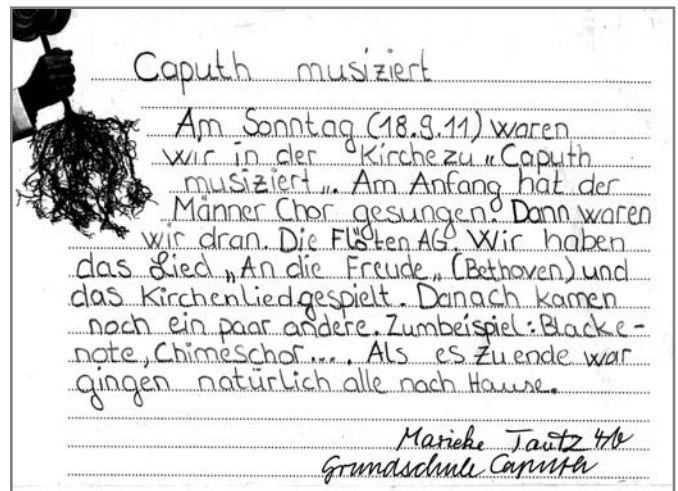 Caputh musiziert
Am Sonntag (18.9.11) waren
wir in der Kirche zu „Caputh
musiziert„. Am Anfang hat der
Männer Chor gesungen. Dann waren
wir dran. Die Flöten AG. Wir haben
das Lied „An die Freude„ (Bethoven) und
das Kirchenlied gespielt. Danach kamen
noch ein paar andere. Zumbeispiel: Blacke-
note, Chimeschor.... Als es zu ende war
gingen natürlich alle nach Hause.
Marieke Tautz 4b
Grundschule Caputh